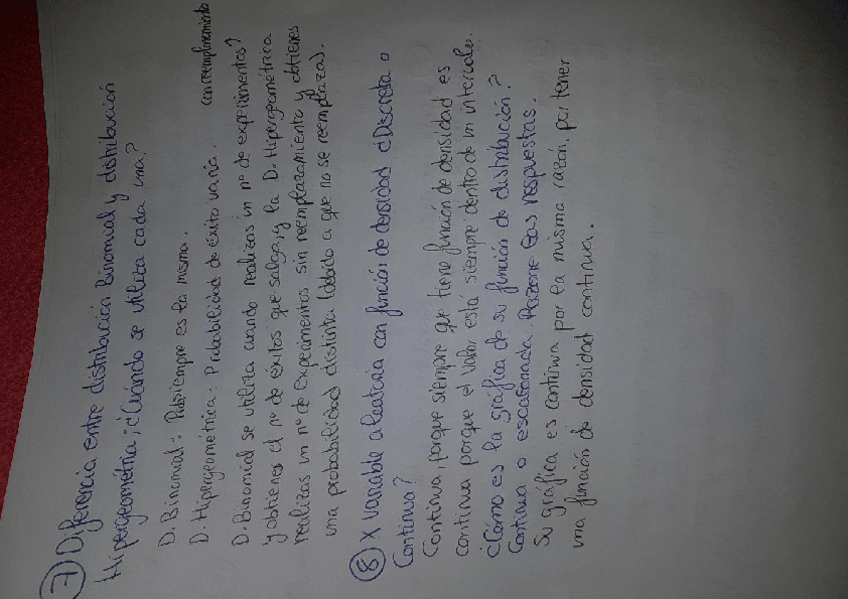 7) Diferencia entre distribución Binomial y distribución
Hipergeométria; ¿Cuándo se utiliza cada una?
D. Binomial: siempre es la misma.
D. Hipergeométrica: Probabilidad de éxito varía.
con reemplazamiento
D. Binomial se utiliza cuando realizas un nº de experimentos?
y obtienes el nº de éxitos que salga, y la D. Hipergeométrica
realizas un nº de experimentos sin reemplazamiento y obtienes
una probabilidad distinta (debido a que no se reemplaza).
8) X variable aleatoria con función de densidad ¿Discreta o
Continua?
Continua, porque siempre que tiene función de densidad es
continua porque el valor está siempre dentro de un intervalo.
¿Cómo es la gráfica de su función de distribución?
Continua o escalonada. Razone las respuestas.
Su gráfica es continua por la misma razón, por tener
una función de densidad continua.